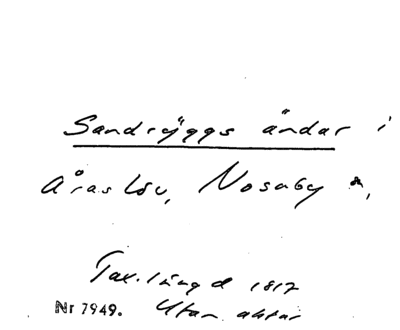 Sandryggs ändar i
Araslöv, Nosaby sn,
Tax.längd 1817
Nr 7949. Utan aktar